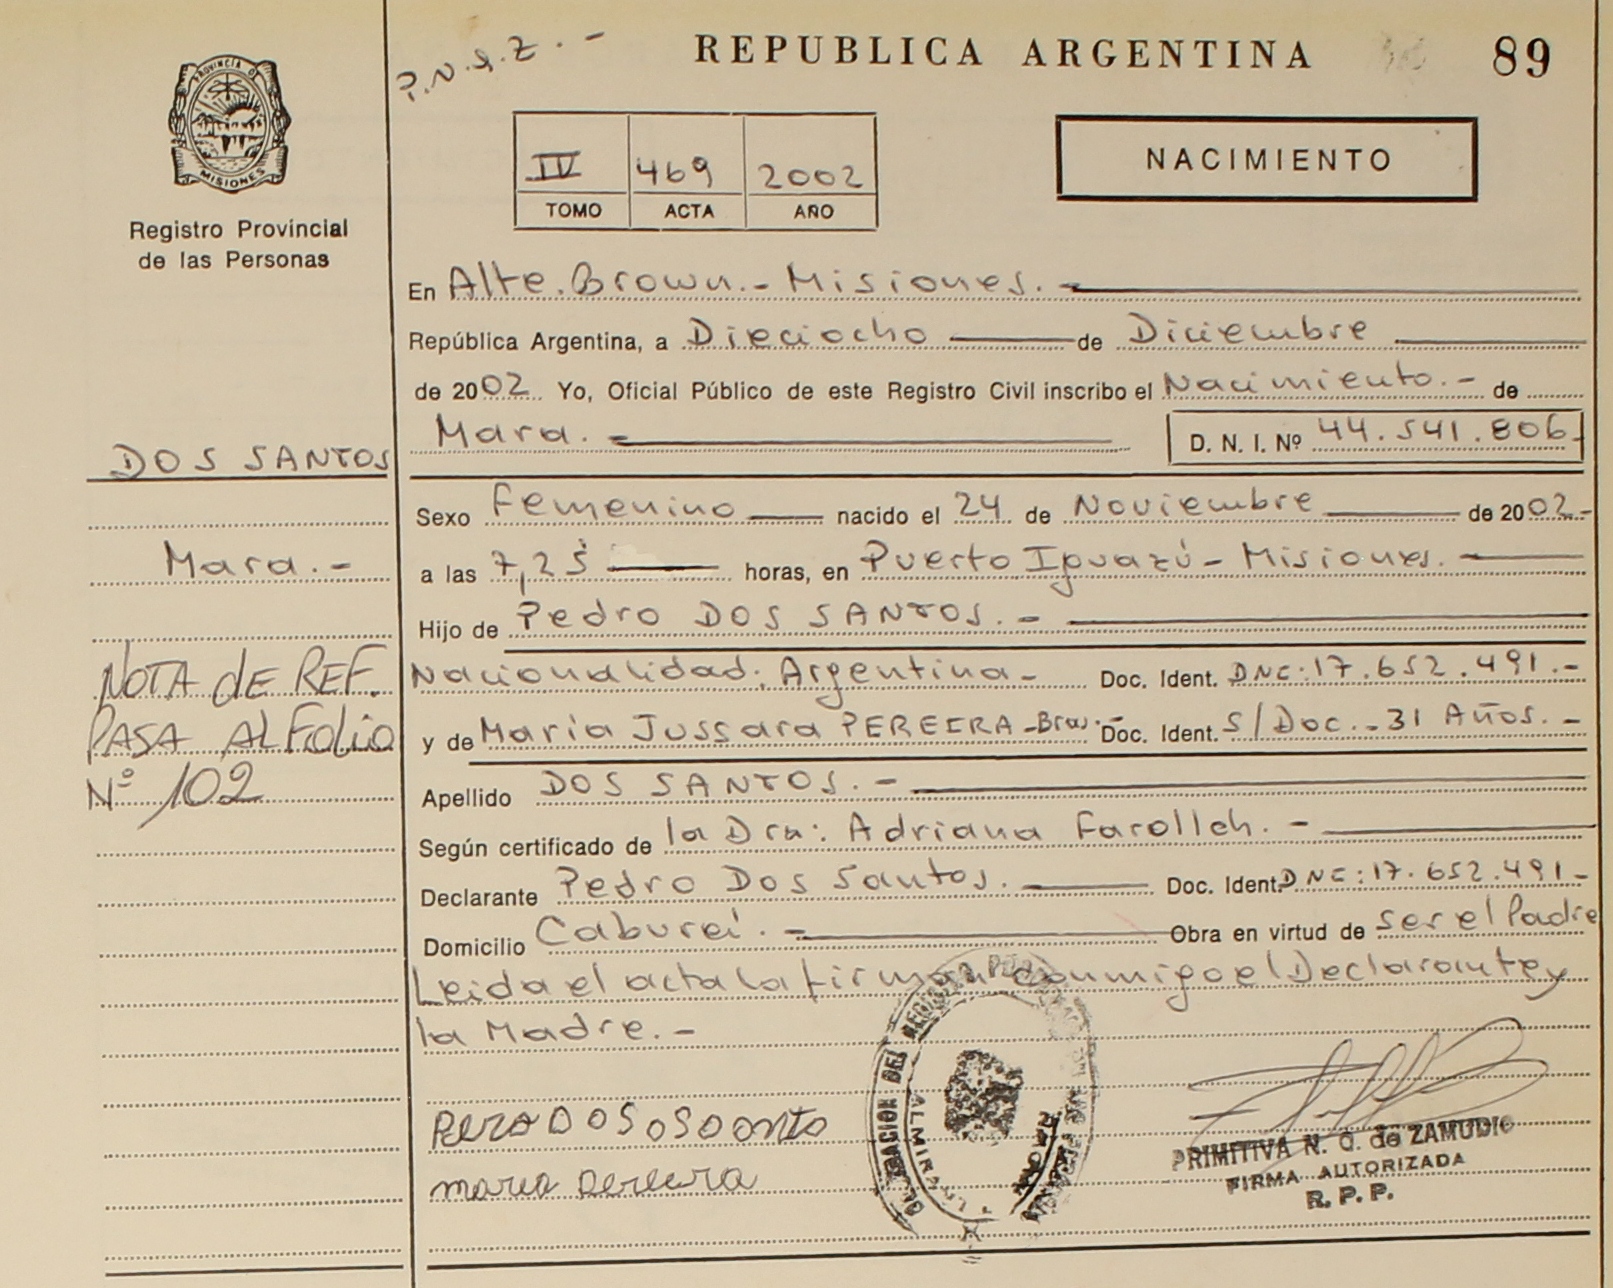 P.N.I.Z.-
REPUBLICA ARGENTINA
89
PROVINCIA DE
MISIONES
Registro Provincial
de las Personas
IV 469 2002
TOMO ACTA AÑO
NACIMIENTO
En Alte. Brown.- Misiones.-
República Argentina, a Dieciocho de Diciembre
de 2002 Yo, Oficial Público de este Registro Civil inscribo el Nacimiento.- de
Mara.- D. N. I. Nº 44.541.806-
DOS SANTOS
Sexo Femenino nacido el 24 de Noviembre de 2002.-
Mara.-
a las 7,25 horas, en Puerto Iguazú - Misiones.
Hijo de Pedro DOS SANTOS.-
NOTA de REF.
PASA AL Folio
Nº 102
Nacionalidad: Argentina- Doc. Ident. DNI: 17.652.491.-
y de María Jussara PEREIRA-Bras.- Doc. Ident. S/Doc.-31 Años.-
Apellido DOS SANTOS.-
Según certificado de la Dra: Adriana Farolleh.-
Declarante Pedro Dos Santos. Doc. Ident. DNI: 17.652.491-
Domicilio Cabureí.- Obra en virtud de ser el Padre
Leida el acta la firman conmigo el Declarante y
la Madre.-
maria pereira
DELEGACION DEL REGISTRO PROVINCIAL DE LAS PERSONAS
ALMIRANTE BROWN
PRIMITIVA N. O. de ZAMUDIO
FIRMA AUTORIZADA
R. P. P.